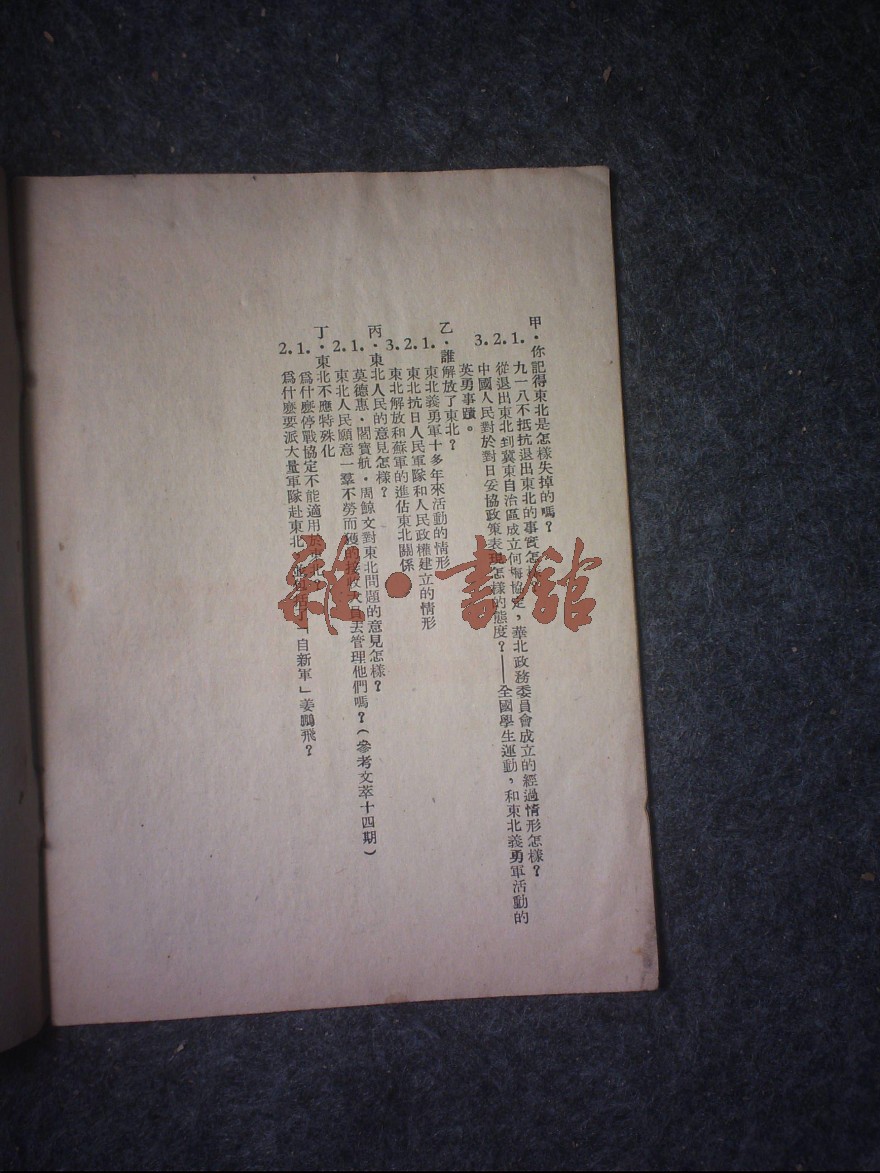 甲．你記得東北是怎樣失掉的嗎？
1. 九一八不抵抗退出東北的事實怎樣？
2. 從退出東北到冀東自治區成立何梅協定，華北政務委員會成立的經過情形怎樣？
3. 中國人民對於對日妥協政策表現怎樣的態度？——全國學生運動，和東北義勇軍活動的
英勇事蹟。
乙．誰解放了東北？
1. 東北義勇軍十多年來活動的情形
2. 東北抗日人民軍隊和人民政權建立的情形
3. 東北解放和蘇軍的進佔東北關係
丙．東北人民的意見怎樣？
1. 莫德惠．閻寶航．周鯨文對東北問題的意見怎樣？
2. 東北人民願意一羣不勞而獲的接收人員去管理他們嗎？（參考文萃十四期）
丁．東北不應特殊化
1. 爲什麽停戰協定不能適用於東北？
2. 爲什麽要派大量軍隊赴東北，「自新軍」姜鵬飛？
雜·書館